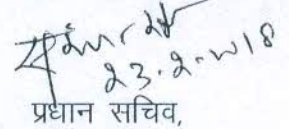 23.2.2018
प्रधान सचिव,